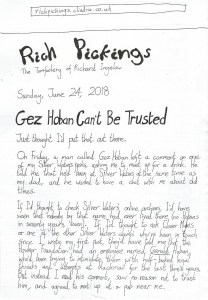 richpickings.aladna.co.uk
Rich Pickings
The Tomfoolery of Richard Ingelow
Sunday, June 24, 2018
Gez Hoban Can't Be Trusted
Just thought I'd put that out there.
On Friday, a man called Gez Hoban left a comment on one
of my Silver Waters posts, asking me to meet up for a drink. He
told me that he'd been at Silver Waters at the same time as
my dad, and he wanted to have a chat with me about old
times.
If I'd thought to check Silver Waters's online archives, I'd have
seen that nobody by that name had ever lived there (no Gerards
in seventy years, even). If I'd thought to ask
or one of the other Silver Waters adults who've been in touch
since I wrote my first post, they'd have told me that the
Foundation had an obsessive named Gerard Hoban,
who'd been trying to infiltrate them with half-baked
threats and attempts at blackmail for the last three years.
But instead, I read his comment, saw no reason not to trust
him, and agreed to meet up at a pub near me.